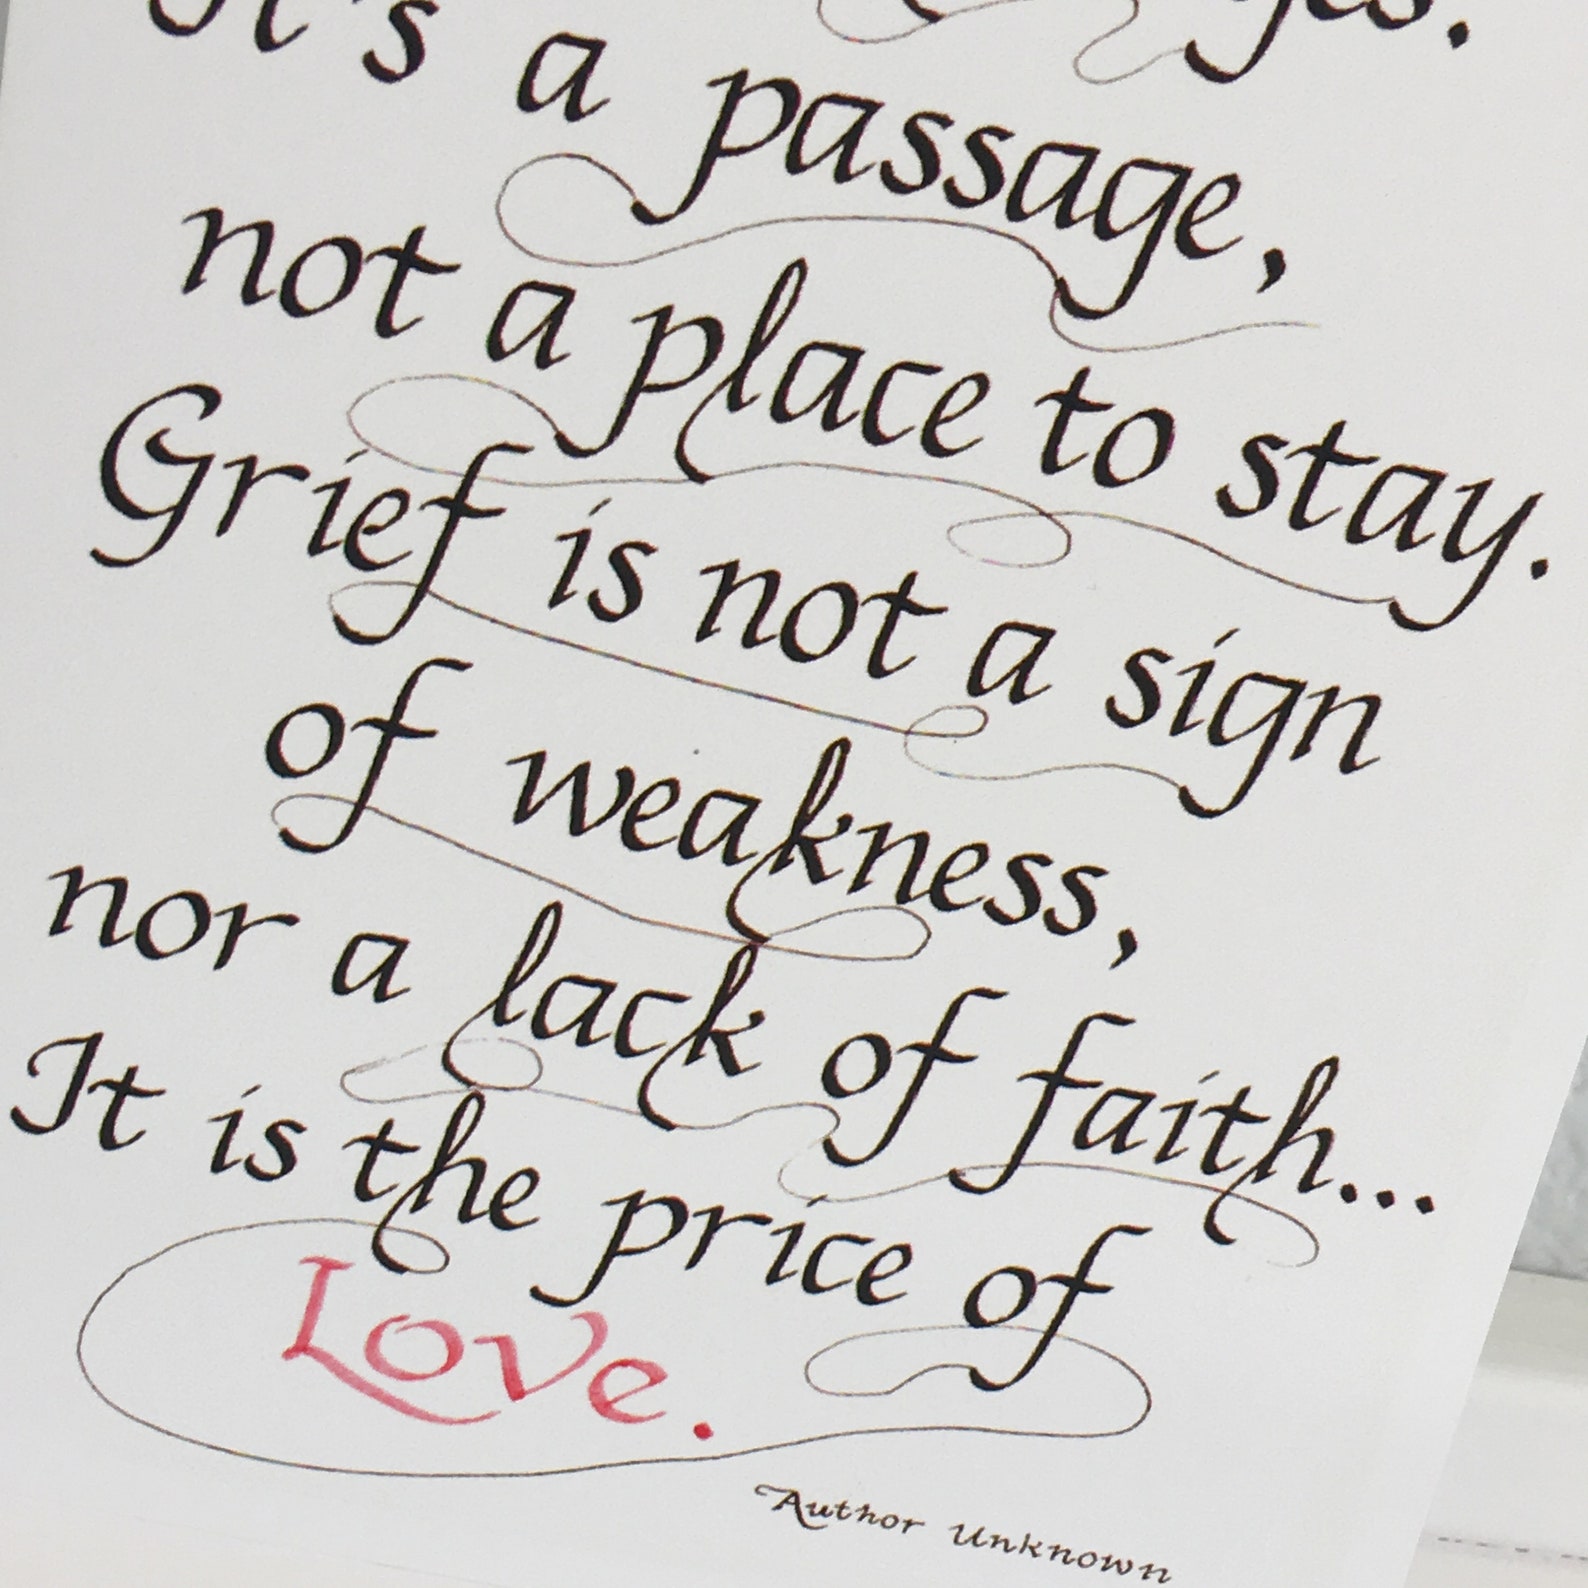 It's a passage,
not a place to stay.
Grief is not a sign
of weakness,
nor a lack of faith...
It is the price of
Love.
Author Unknown